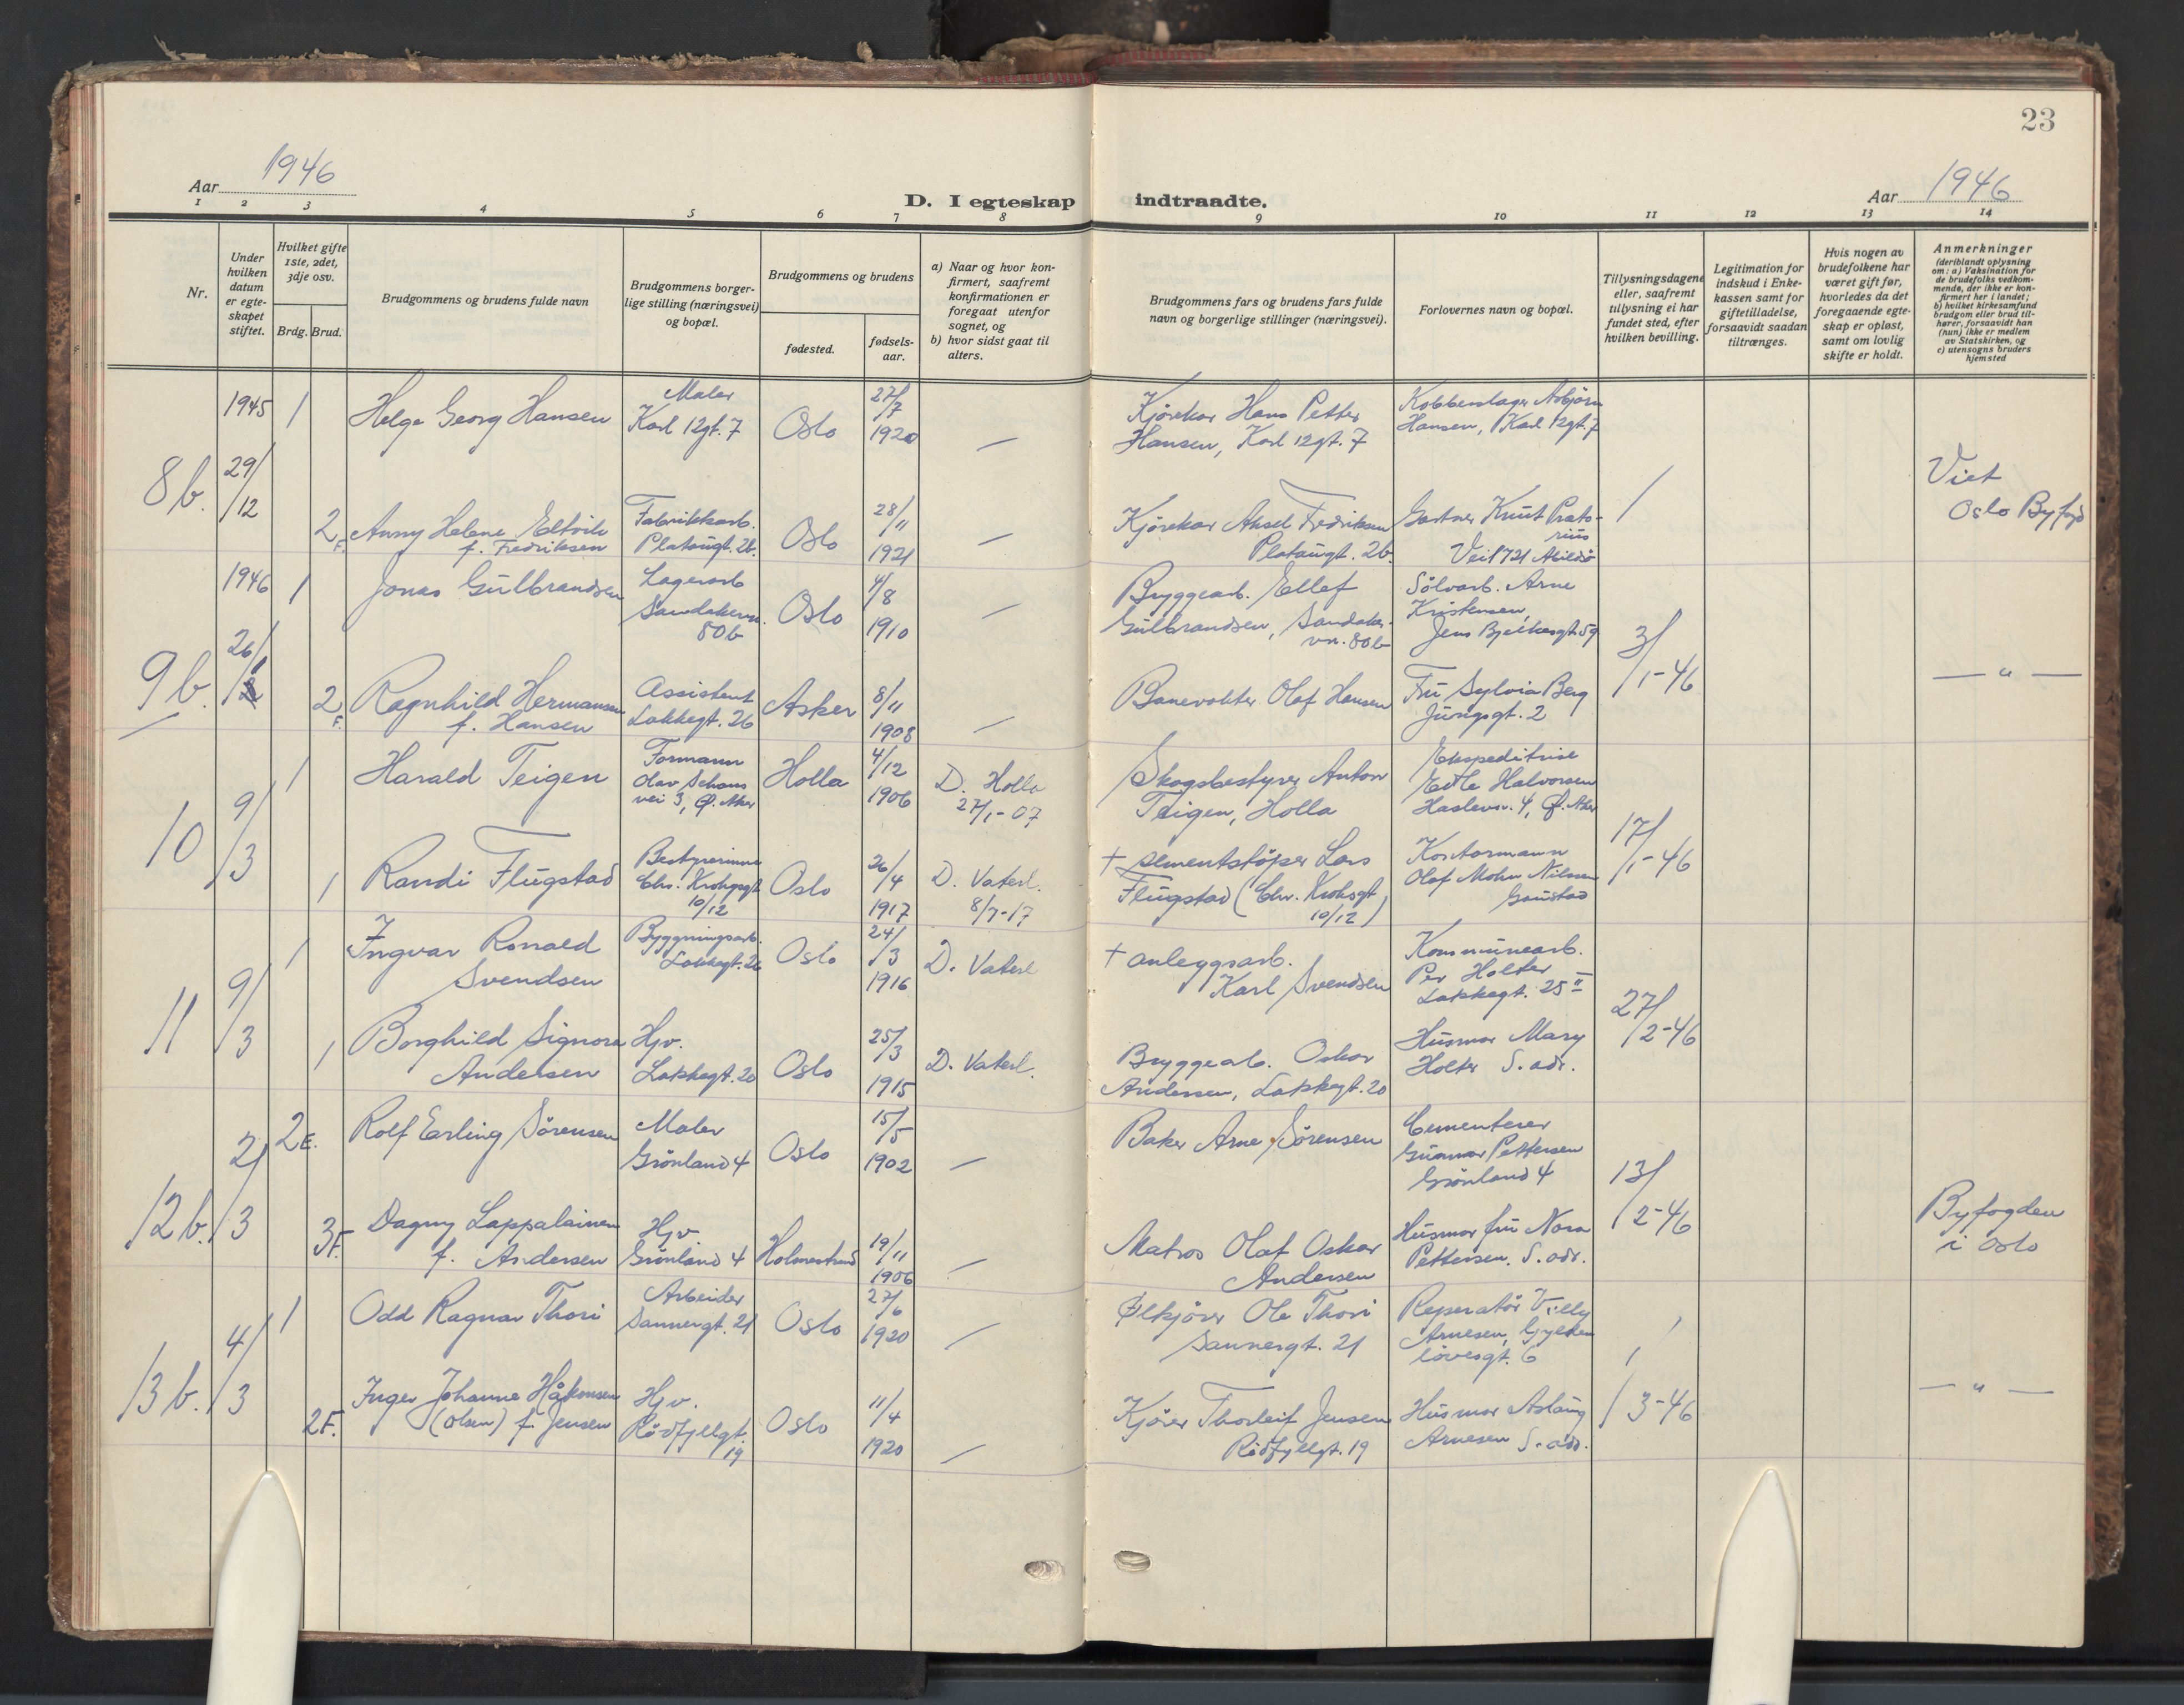 23
Aar 1946
Aar 1946
D. I egteskap indtraadte.
1 2 3 4 5 6 7 8 9 10 11 12 13 14
Nr.
Under hvilken datum er egte-skapet stiftet.
Hvilket gifte 1ste, 2det, 3dje osv.
Brdg. Brud.
Brudgommens og brudens fulde navn
Brudgommens borger-lige stilling (næringsvei) og bopæl.
Brudgommens og brudens
fødested.
fødsels-aar.
a) Naar og hvor kon-firmert, saafremt konfirmationen er foregaat utenfor sognet, og
b) hvor sidst gaat til alters.
Brudgommens fars og brudens fars fulde navn og borgerlige stillinger (næringsvei).
Forlovernes navn og bopæl.
Tillysningsdagene eller, saafremt tillysning ei har fundet sted, efter hvilken bevilling.
Legitimation for indskud i Enke-kassen samt for giftetilladelse, forsaavidt saadan tiltrænges.
Hvis nogen av brudefolkene har været gift før, hvorledes da det foregaaende egte-skap er opløst, samt om lovlig skifte er holdt.
Anmerkninger (deriblandt oplysning om: a) Vaksination for de brudefolks vedkom-mende, der ikke er kon-firmert her i landet; b) hvilket kirkesamfund brudgom eller brud til-hører, forsaavidt han (hun) ikke er medlem av Statskirken, og c) utensogns bruders hjemsted
8b. 1945 29/12
1 Helge Georg Hansen
Maler
Karl 12gt. 7
Oslo
27/7 1920
—
Kjørekar Hans Petter
Hansen, Karl 12gt. 7
Kobberslager Asbjørn
Hansen, Karl 12gt. 7
/
Viet
Oslo Byfogd
2 F. Anny Helene Eltvik
f. Fredriksen
Fabrikkarb.
Platougt. 2b.
Oslo
28/11 1921
—
Kjørekar Aksel Fredriksen
Platougt. 2b.
Gartner Knut Præto-
rius
Vei 1721 Abildsö
9b. 1946 26/1
1 Jonas Gulbrandsen
Lagerarb
Sandakerv.
80b
Oslo
4/8 1910
—
Bryggearb. Ellef
Gulbrandsen, Sandaker-
vn. 80b
Sölvarb. Arne
Kristensen,
Jens Bjelkesgt. 59
3/1-46
— " —
2 F. Ragnhild Hermansen
f. Hansen
Assistent
Lakkegt. 26
Asker
8/11 1908
—
Banevokter Olaf Hansen
Fru Sylvia Berg
Jungsgt. 2
10 9/3
1 Harald Teigen
Formann
Olav Schous
vei 3, Ø. Aker
Holla
4/12 1906
D. Holla
27/1-07
Skogsbestyrer Anton
Teigen, Holla
Ekspeditrise
Edle Halvorsen
Haslevn. 4, Ø. Aker
17/1-46
1 Randi Flugstad
Bestyrerinne
Chr. Krohgsgt
10/12
Oslo
26/4 1917
D. Vaterl.
8/7-17
+ sementstöper Lars
Flugstad (Chr. Krohsgt
10/12)
Kontormann
Olaf Mohn Nilssen
Gaustad
11 9/3
1 Ingvar Ronald
Svendsen
Byggningsarb.
Lakkegt. 26
Oslo
24/3 1916
D. Vaterl
+ anleggsarb.
Karl Svendsen
Kommunearb.
Per Holter
Lakkegt. 25 II
27/2-46
1 Borghild Signora
Andersen
Hjv.
Lakkegt. 20
Oslo
25/3 1915
D. Vaterl.
Bryggearb. Oskar
Andersen, Lakkegt. 20
Husmor Mary
Holter S. adr.
12b. 2/3
2 E. Rolf Erling Sörensen
Maler
Grönland 4
Oslo
15/5 1902
—
Baker Arne Sörensen
Cementerer
Gunnar Pettersen
Grönland 4
13/2-46
Byfogden
i Oslo
3 F. Dagny Lappalainen
f. Andersen
Hjv
Grönland 4
Holmestrand
19/11 1906
—
Matros Olaf Oskar
Andersen
Husmor fru Nora
Pettersen. S. adr.
13b. 4/3
1 Odd Ragnar Thori
Arbeider
Sannergt. 21
Oslo
27/6 1920
—
Ølkjörer Ole Thori
Sannergt. 21
Reperatör Villy
Arnesen, Gylden
lövesgt. 6
1/3-46
— " —
2 F. Inger Johanne Håkonsen
(Olsen) f. Jensen
Hjv.
Rödfyllgt.
19
Oslo
11/4 1920
—
Kjörer Thorleif Jensen
Rödfyllgt. 19
Husmor Aslaug
Arnesen S. adr.